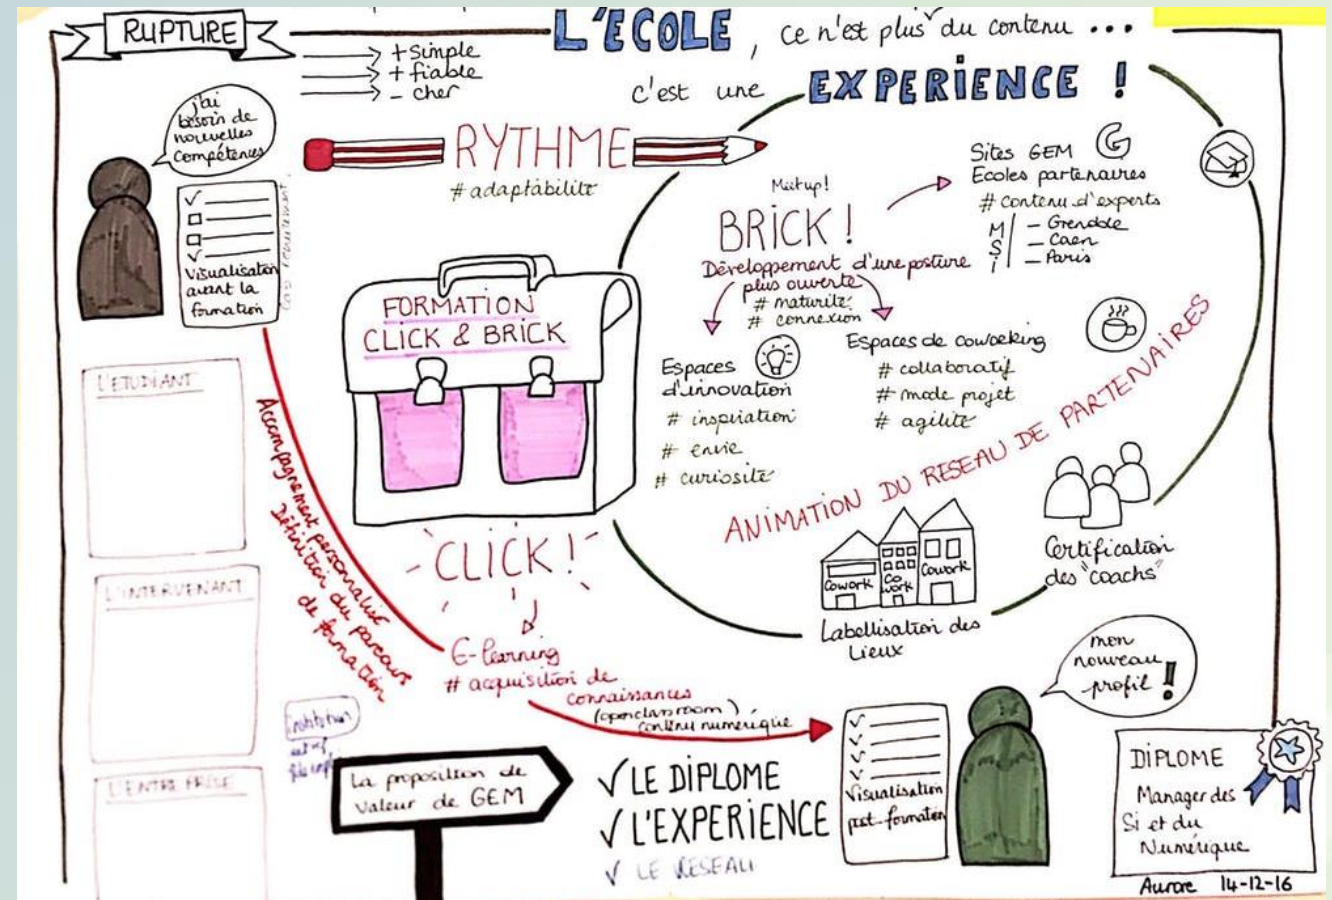 RUPTURE
+ Simple
+ fiable
- cher
L'ÉCOLE, ce n'est plus du contenu ...
c'est une EXPERIENCE !
j'ai
besoin de
nouvelles
compétences
visualisation
avant la
formation
RYTHME
# adaptabilité
FORMATION
CLICK & BRICK
Meetup!
BRICK !
Développement d'une posture
plus ouverte
# maturité
# connexion
Sites GEM
Ecoles partenaires
# contenu d'experts
MSI
- Grenoble
- Caen
- Paris
Espaces
d'innovation
# inspiration
# envie
# curiosité
Espaces de coworking
# collaboratif
# mode projet
# agilité
ANIMATION DU RESEAU DE PARTENAIRES
Certification
des "coachs"
Cowork
Co
work
Cowork
Labellisation des
Lieux
L'ETUDIANT
L'INTERVENANT
L'ENTREPRISE
Accompagnement personnalisé
Définition du parcours
de formation
CLICK !
E-learning
# acquisition de
connaissances
(openclassroom)
contenu numérique
institution
La proposition de
valeur de GEM
✓ LE DIPLOME
✓ L'EXPERIENCE
✓ LE RESEAU
Visualisation
post-formation
mon
nouveau
profil !
DIPLOME
Manager des
Si et du
Numérique
Aurore 14-12-16